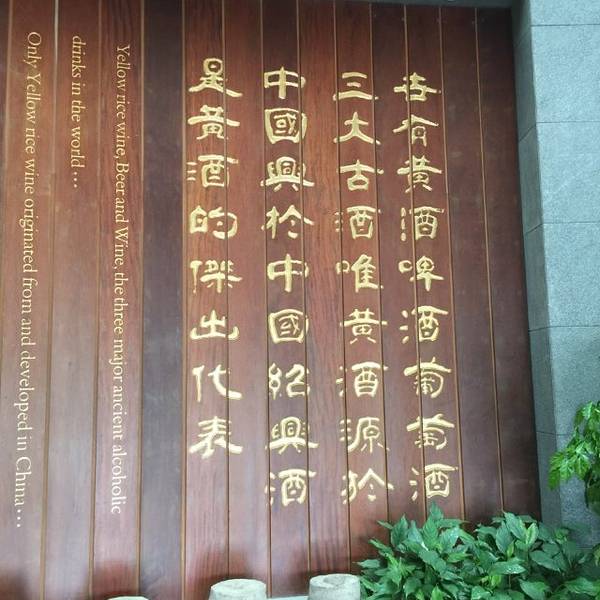 世有黃酒啤酒葡萄酒
三大古酒唯黃酒源於
中國興於中國紹興酒
是黃酒的傑出代表
Yellow rice wine, Beer and Wine, the three major ancient alcoholic
drinks in the world…
Only Yellow rice wine originated from and developed in China…